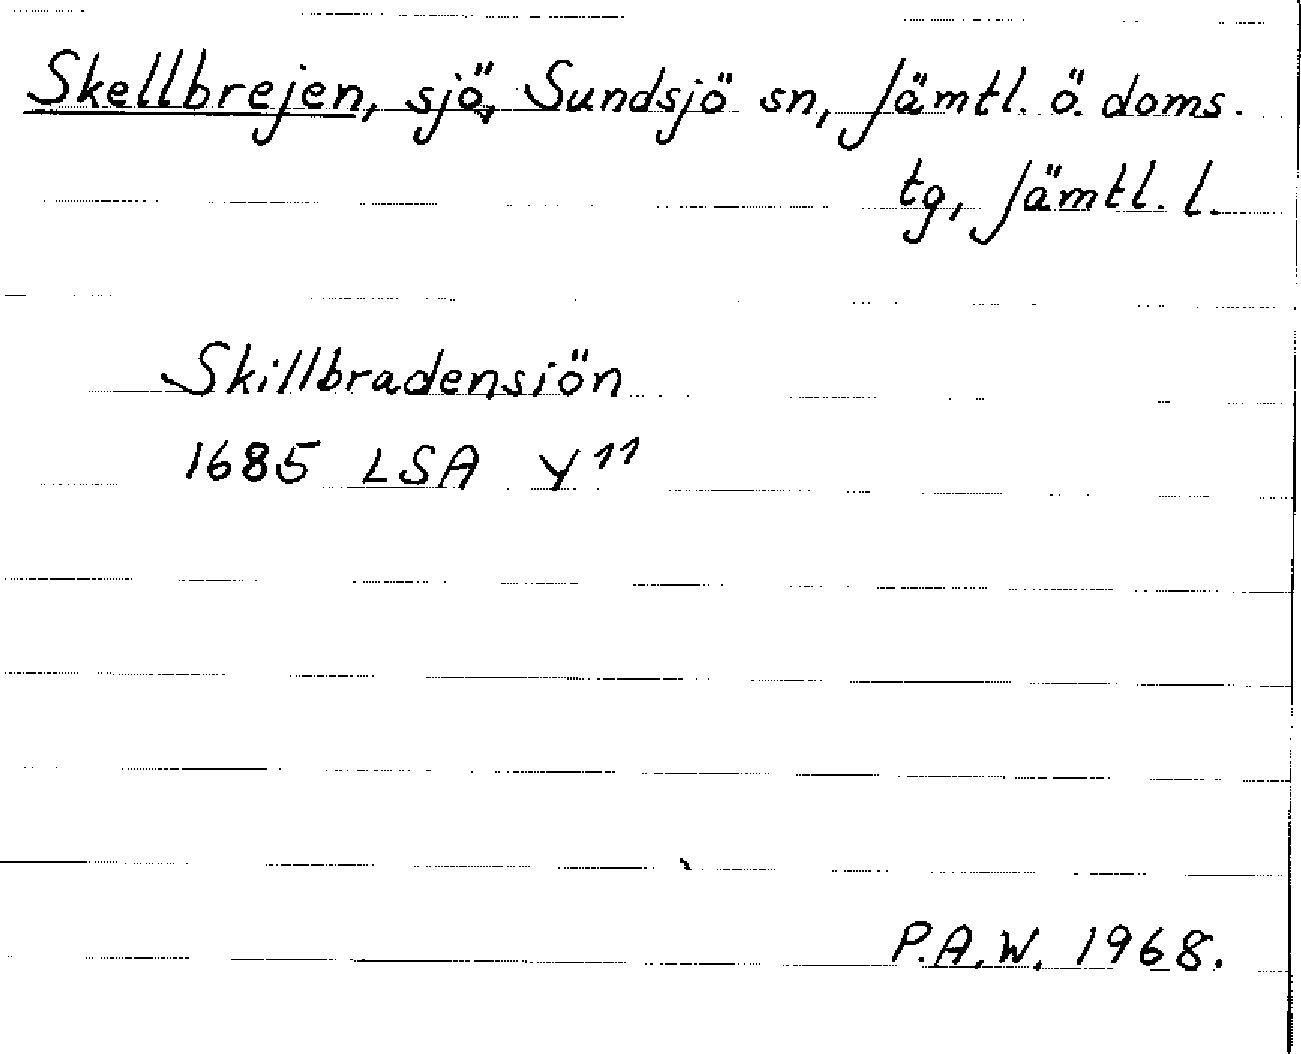 Skellbrejen, sjö, Sundsjö sn, Jämtl. ö. doms.
tg, Jämtl. l.
Skillbradensiön
1685 LSA Y 11
P.A.W. 1968.